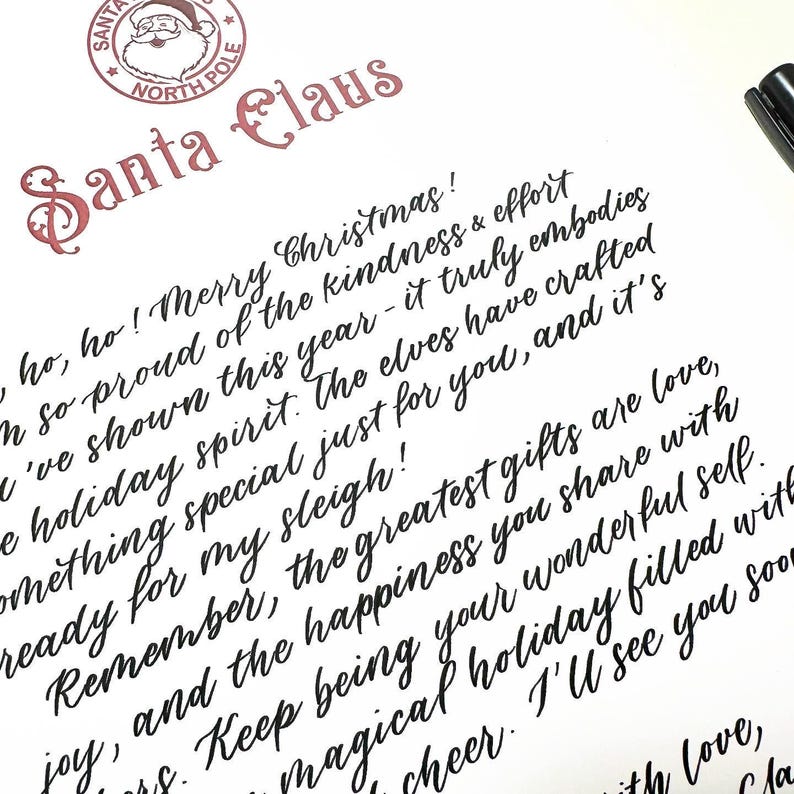 SANTA
NORTH POLE
Santa Claus
, ho, ho! Merry Christmas!
so proud of the kindness & effort
've shown this year - it truly embodies
holiday spirit. The elves have crafted
something special just for you, and it's
ready for my sleigh!
Remember, the greatest gifts are love,
joy, and the happiness you share with
Keep being your wonderful self.
magical holiday filled with
cheer. I'll see you soon
with love,